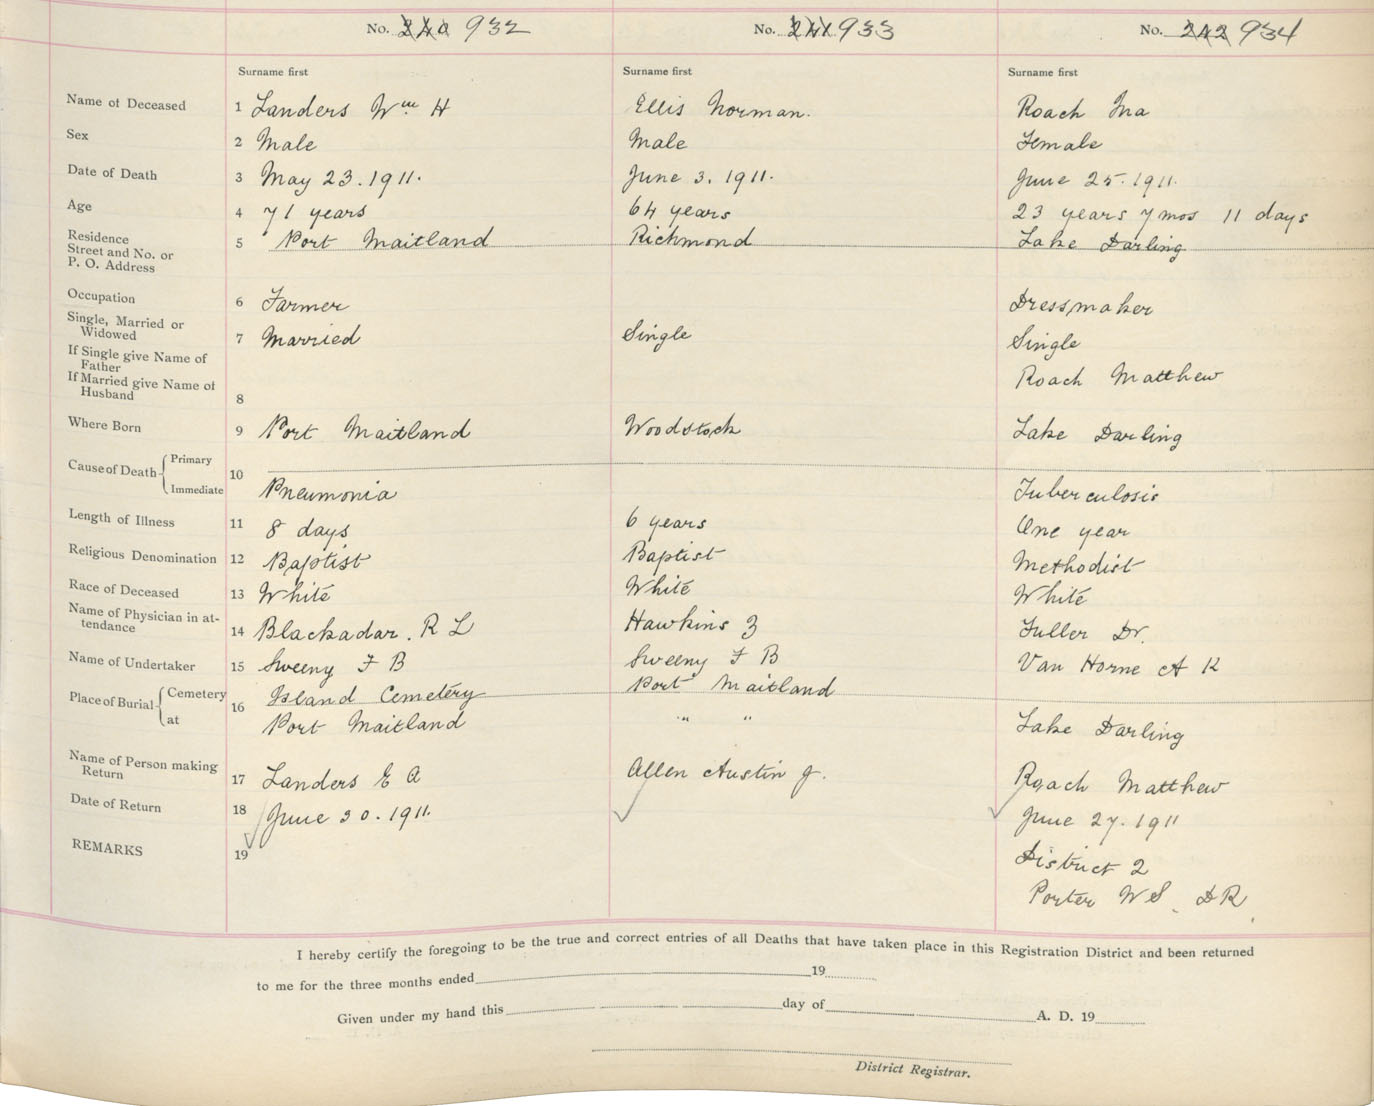 No. 240 932 No. 241 933 No. 242 934
Surname first Surname first Surname first
Name of Deceased 1 Landers Wm H Ellis Norman. Roach Ina
Sex 2 Male Male Female
Date of Death 3 May 23. 1911. June 3. 1911. June 25. 1911.
Age 4 71 years 64 years 23 years 7 mos 11 days
Residence
Street and No. or 5 Port Maitland Richmond Lake Darling
P. O. Address
Occupation 6 Farmer Dressmaker
Single, Married or
Widowed 7 Married Single Single
If Single give Name of
Father Roach Matthew
If Married give Name of
Husband 8
Where Born 9 Port Maitland Woodstock Lake Darling
Cause of Death Primary 10
Immediate Pneumonia Tuberculosis
Length of Illness 11 8 days 6 years One year
Religious Denomination 12 Baptist Baptist Methodist
Race of Deceased 13 White White White
Name of Physician in at-
tendance 14 Blackadar. R L Hawkins Z Fuller Dr.
Name of Undertaker 15 Sweeny F B Sweeny F B Van Horne A K
Place of Burial Cemetery 16 Island Cemetery Port Maitland
at Port Maitland " " Lake Darling
Name of Person making
Return 17 Landers E A Allen Austin J. Roach Matthew
Date of Return 18 June 30. 1911. June 27. 1911
REMARKS 19 District 2
Porter W S. DR
I hereby certify the foregoing to be the true and correct entries of all Deaths that have taken place in this Registration District and been returned
to me for the three months ended 19
Given under my hand this day of A. D. 19
District Registrar.